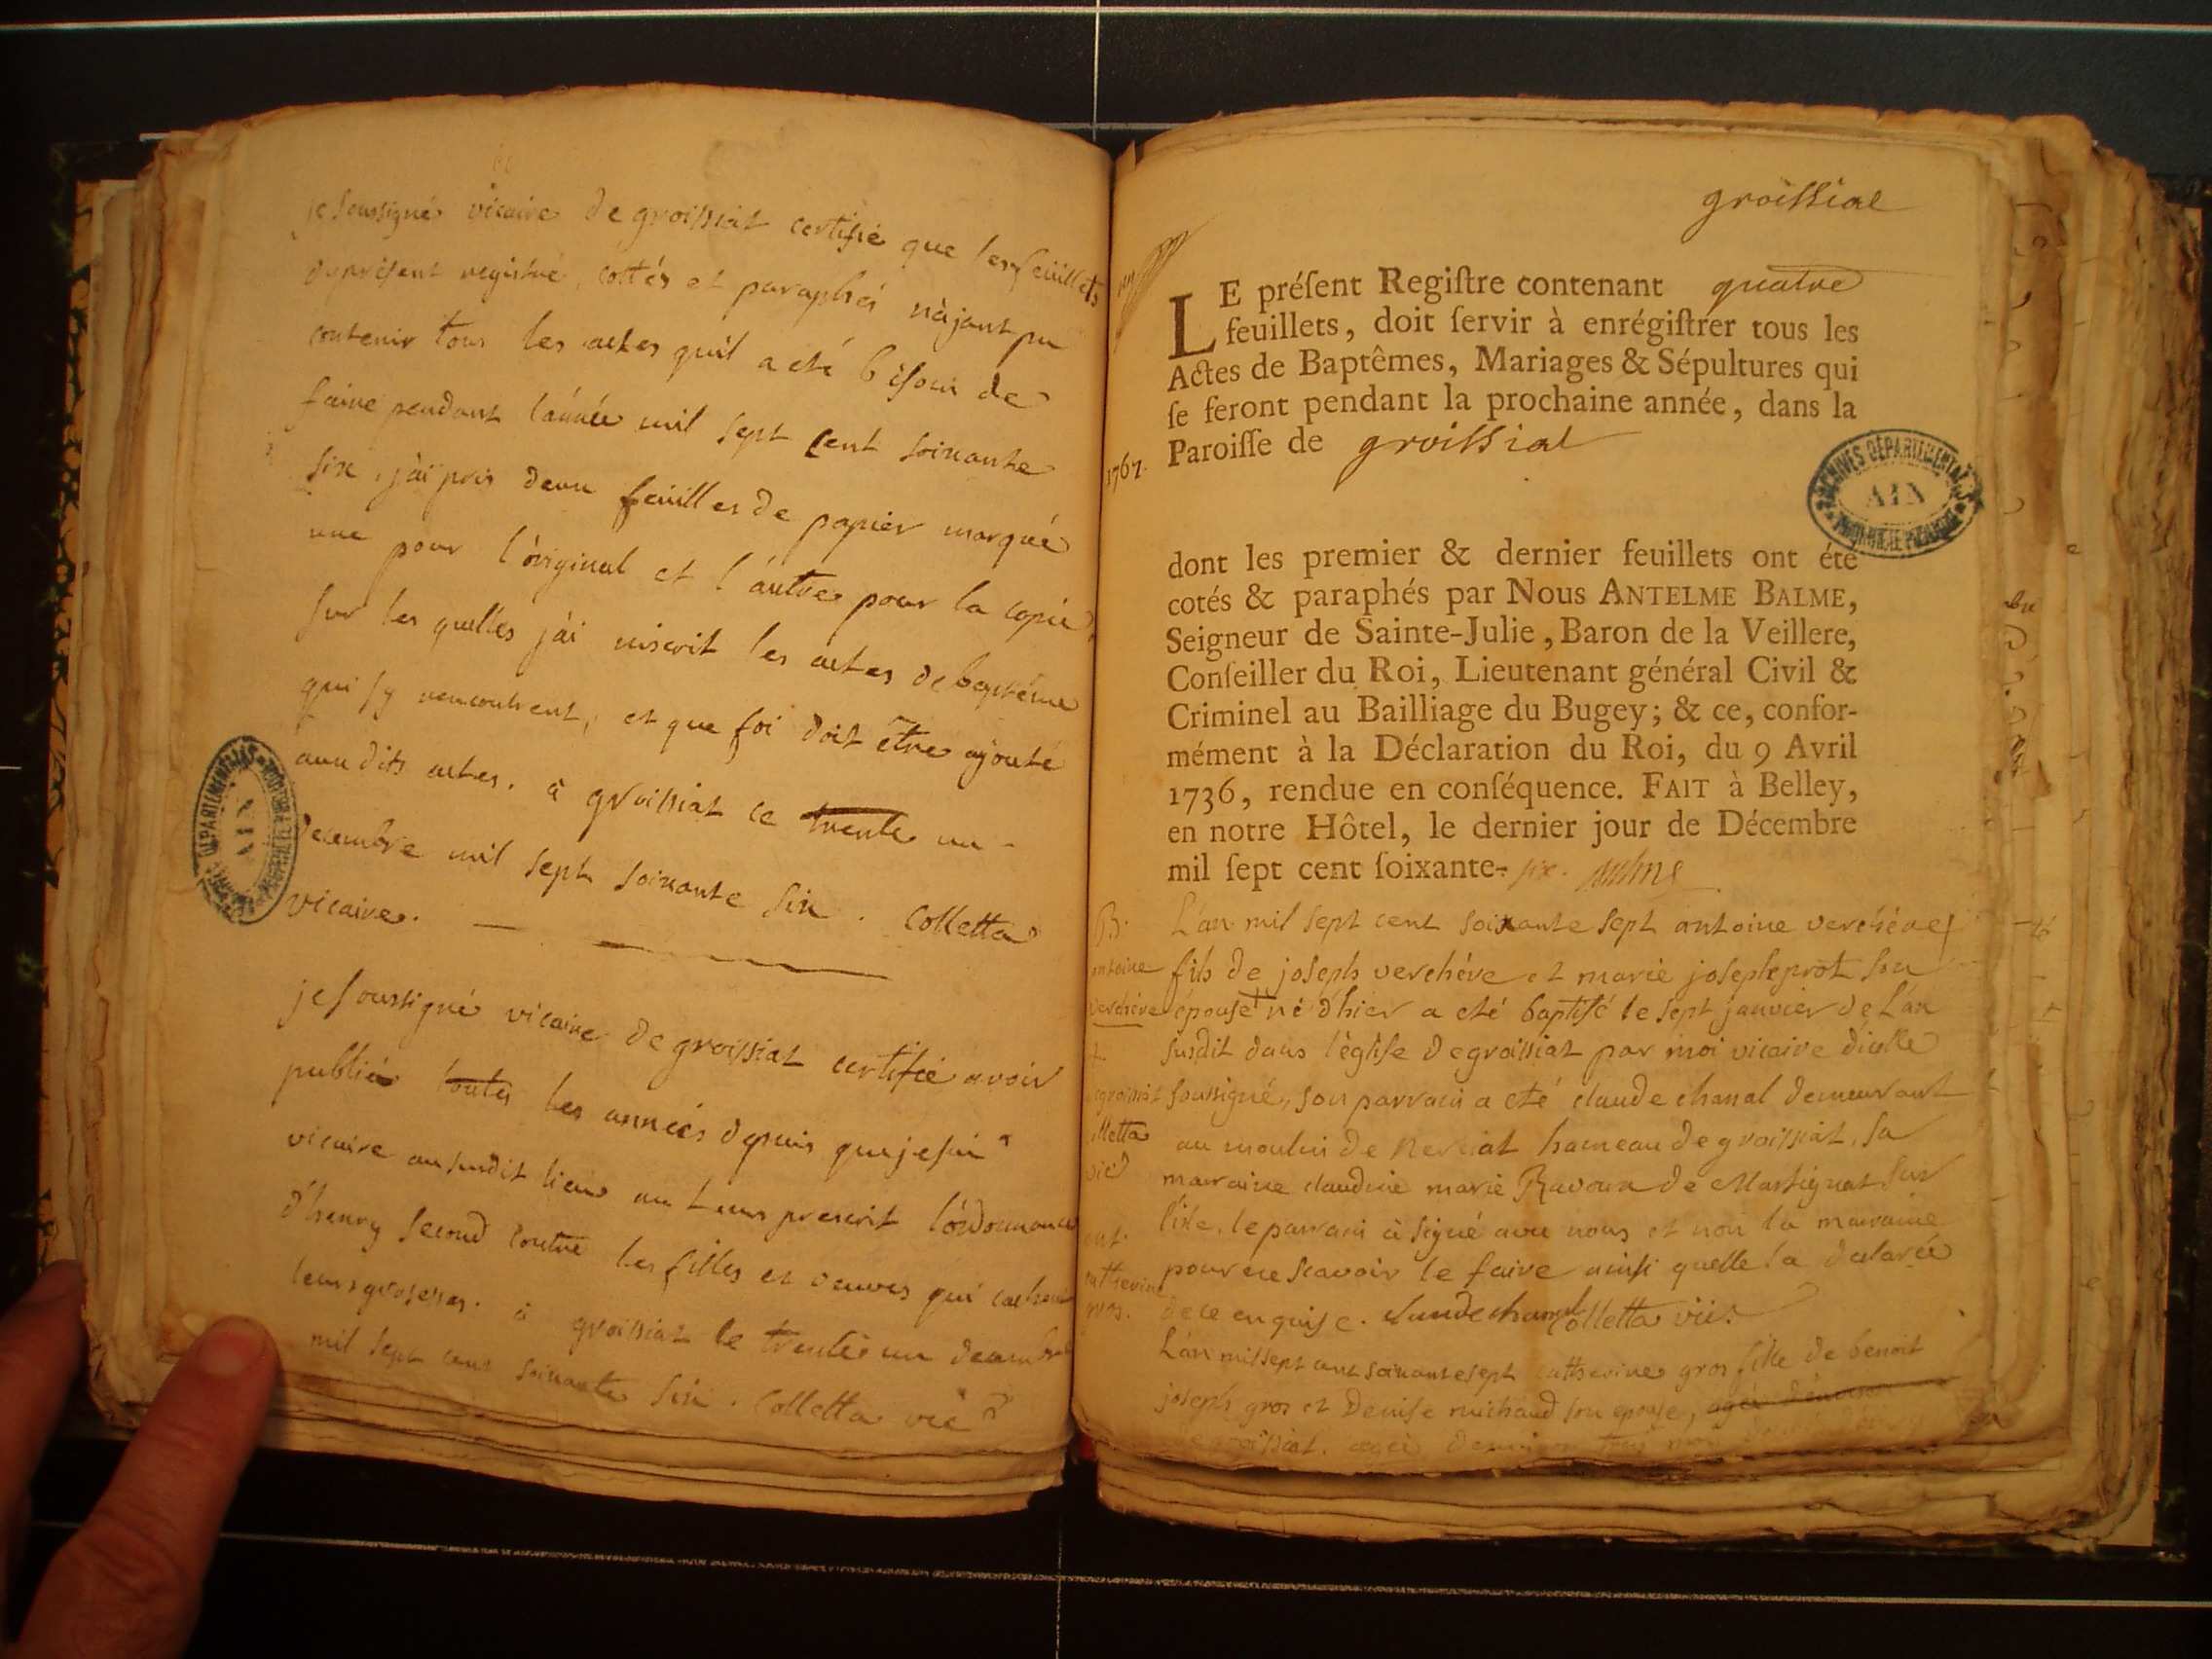 je soussigné vicaire de groissiat certifie que les feüillets
du présent registre, cottés et paraphés n'aÿant pu
contenir tous les actes qu'il a eté bésoin de
faire pendant l'année mil sept cent soixante
six, j'ai pris deux feüilles de papier marqué
une pour l'original et l'autre pour la copie
sur les quelles j'ai inscrit les actes de baptême
qui s'y rencontrent, et que foi doit être ajouté
aux dits actes. à groissiat ce trente un
decembre mil sept soixante six. Colletta
vicaire.
je soussigné vicaire de groissiat certifie avoir
publié toutes les années depuis que je suis
vicaire au susdit lieu au tems prescrit l'ordonnance
d'henry second contre les filles et veuves qui cachent
leurs grosesses. à groissiat le trente un decembre
mil sept cent soixante six. Colletta vic
groissiat
LE préſent Regiſtre contenant quatre
feuillets, doit ſervir à enrégiſtrer tous les
Actes de Baptêmes, Mariages & Sépultures qui
ſe feront pendant la prochaine année, dans la
Paroiſſe de groissiat
1767.
ARCHIVES DÉPARTEMENTALES
AIN
dont les premier & dernier feuillets ont été
cotés & paraphés par Nous ANTELME BALME,
Seigneur de Sainte-Julie, Baron de la Veillere,
Conſeiller du Roi, Lieutenant général Civil &
Criminel au Bailliage du Bugey; & ce, confor-
mément à la Déclaration du Roi, du 9 Avril
1736, rendue en conſéquence. FAIT à Belley,
en notre Hôtel, le dernier jour de Décembre
mil ſept cent ſoixante- six. Balme
B.
antoine
verchére
L'an mil sept cent soixante sept antoine verchére
fils de joseph verchére et marie joseph prost son
épouse né d'hier a eté baptisé le sept janvier de l'an
susdit dans l'église de groissiat par moi vicaire dicelle
soussigné, son parrain a eté claude chanal demeurant
au moulin de Nerciat hameau de groissiat, sa
marraine claudine marie Ravoux de Martignat sur
lisle. le parrain à signé avec nous et non la marraine
pour ne scavoir le faire ainsi quelle la declarée
de ce enquise. Claude chanal Colletta vic.
catherine
gros.
L'an mil sept cent soixante sept catherine gros fille de benoit
joseph gros et Denise michaud son epouse, agée